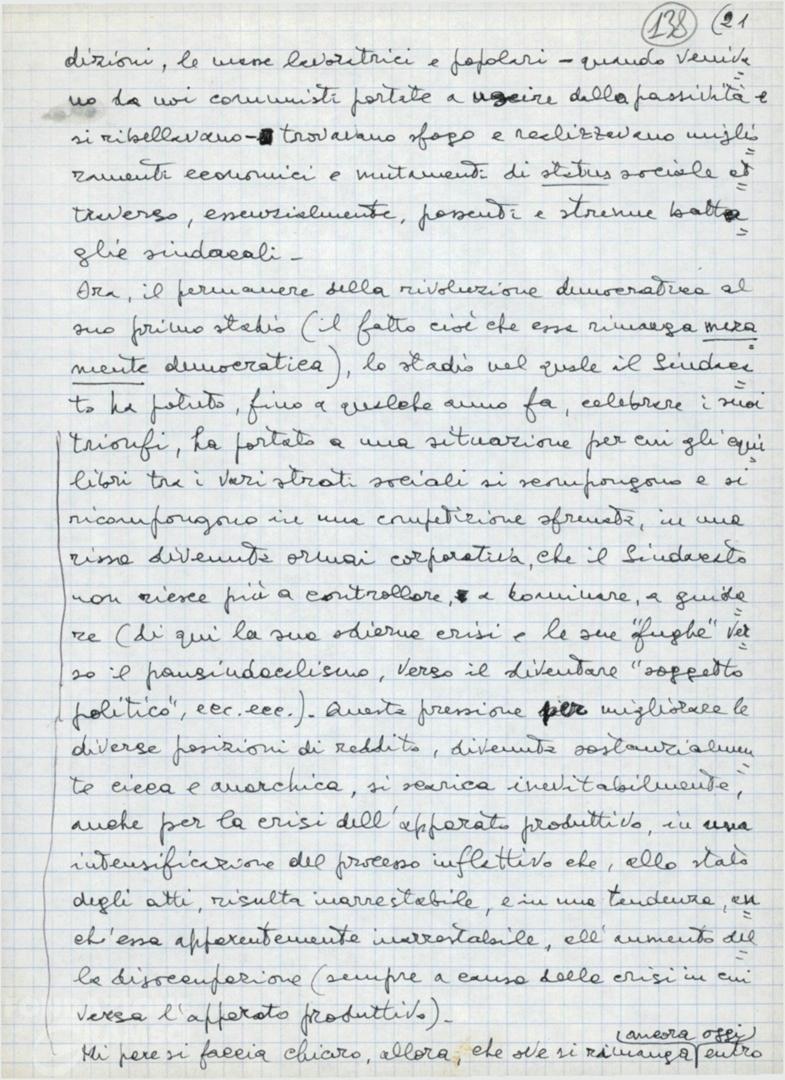 138 (21
dizioni, le masse lavoratrici e popolari – quando veniva
no da noi comunisti portate a uscire dalla passività e
si ribellavano – trovavano sfogo e realizzavano miglio
ramenti economici e mutamenti di status sociale at
traverso, essenzialmente, possenti e strenue batta
glie sindacali –
Ora, il permanere della rivoluzione democratica al
suo primo stadio (il fatto cioè che essa rimanga mera
mente democratica), lo stadio nel quale il Sindaca
to ha potuto, fino a qualche anno fa, celebrare i suoi
trionfi, ha portato a una situazione per cui gli equi
libri tra i vari strati sociali si scompongono e si
ricompongono in una competizione sfrenata, in una
rissa divenuta ormai corporativa, che il Sindacato
non riesce più a controllare, a dominare, a guida
re (di qui la sua odierna crisi e le sue "fughe" ver
so il pansindacalismo, verso il diventare "soggetto
politico", ecc. ecc.). Questa pressione per migliorare le
diverse posizioni di reddito, divenuta sostanzialmen
te cieca e anarchica, si scarica inevitabilmente,
anche per la crisi dell'apparato produttivo, in una
intensificazione del processo inflattivo che, allo stato
degli atti, risulta inarrestabile, e in una tendenza, an
ch'essa apparentemente inarrestabile, all'aumento del
la disoccupazione (sempre a causa della crisi in cui
versa l'apparato produttivo).
(ancora oggi)
Mi pare si faccia chiaro, allora, che ove si rimanga entro